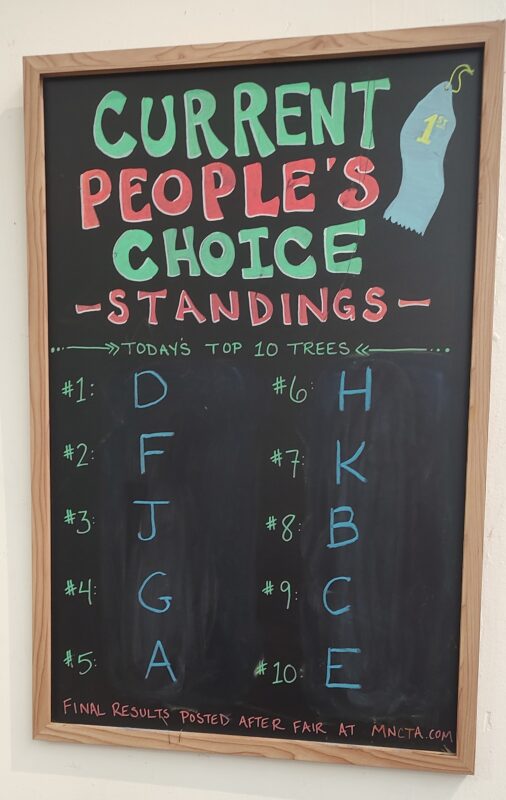 CURRENT
1ST
PEOPLE'S
CHOICE
-STANDINGS-
TODAY'S TOP 10 TREES
#1: D
#2: F
#3: J
#4: G
#5: A
#6: H
#7: K
#8: B
#9: C
#10: E
FINAL RESULTS POSTED AFTER FAIR AT MNCTA.COM